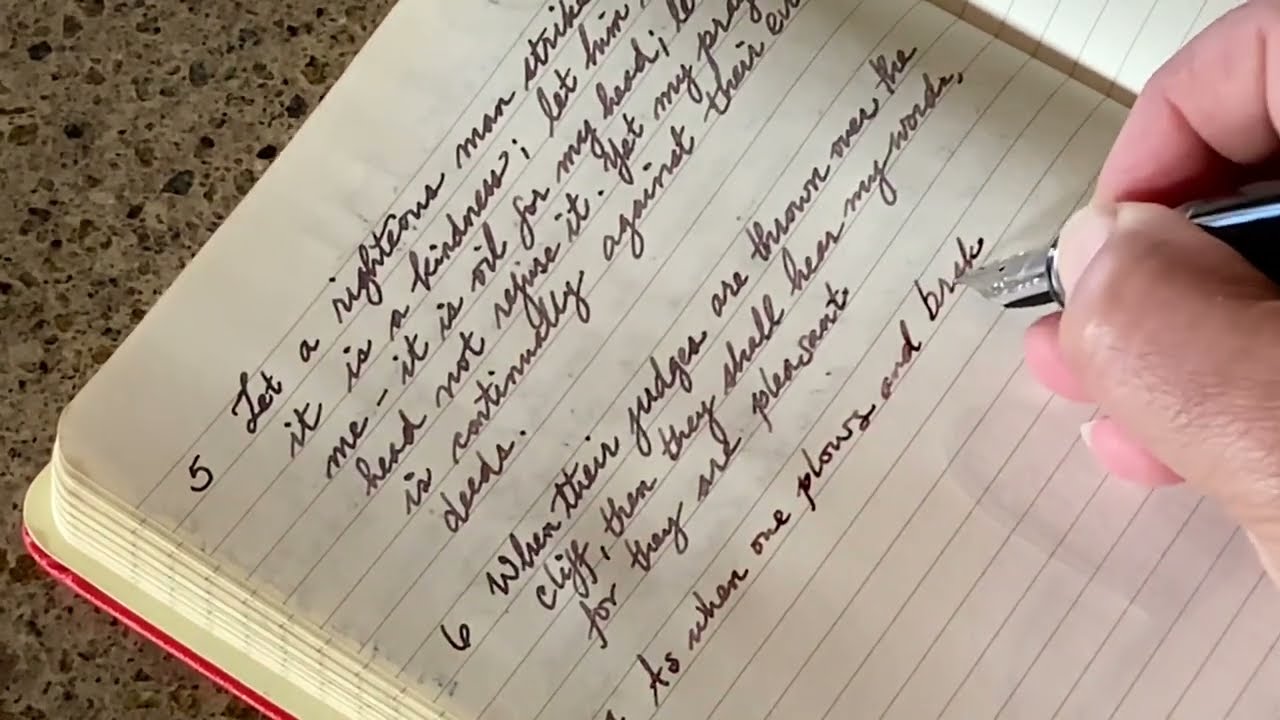 5 Let a righteous man strike
it is a kindness; let him
me - it is oil for my head; le
head not refuse it. Yet my pray
is continually against their ev
deeds.
6 When their judges are thrown over the
cliff, then they shall hear my words,
for they are pleasant.
As when one plows and brek